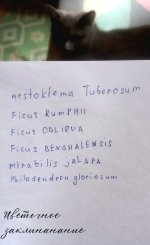 mestoklema Tuberosum
Ficus RUMPHII
Ficus OBLIQUA
Ficus BENGHALENSIS
Mirabilis jALAPA
Philodendron gloriosum
Цветочное
заклинанание